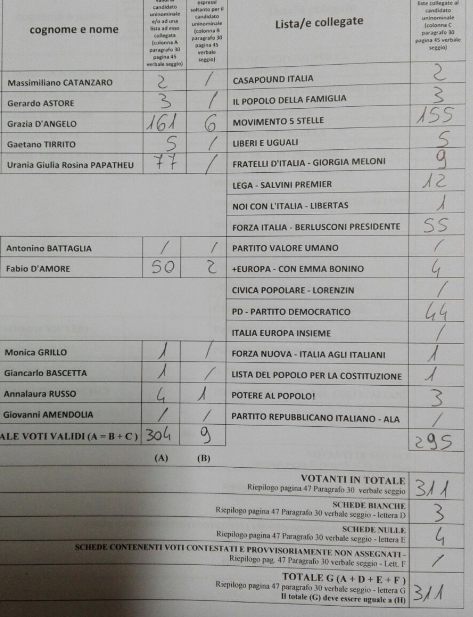 cognome e nome
candidato
uninominale
e/o ad una
lista ad esso
collegata
(colonna A
paragrafo 30
pagina 45
verbale seggio)
espressi
soltanto per il
candidato
uninominale
(colonna B
paragrafo 30
pagina 45
verbale
seggio)
Lista/e collegate
liste collegate al
candidato
uninominale
(colonna C
paragrafo 30
pagina 45 verbale
seggio)
Massimiliano CATANZARO 2 / CASAPOUND ITALIA 2
Gerardo ASTORE 3 / IL POPOLO DELLA FAMIGLIA 3
Grazia D'ANGELO 161 6 MOVIMENTO 5 STELLE 155
Gaetano TIRRITO 5 / LIBERI E UGUALI 5
Urania Giulia Rosina PAPATHEU 77 / FRATELLI D'ITALIA - GIORGIA MELONI 9
LEGA - SALVINI PREMIER 12
NOI CON L'ITALIA - LIBERTAS 1
FORZA ITALIA - BERLUSCONI PRESIDENTE 55
Antonino BATTAGLIA / / PARTITO VALORE UMANO /
Fabio D'AMORE 50 2 +EUROPA - CON EMMA BONINO 4
CIVICA POPOLARE - LORENZIN /
PD - PARTITO DEMOCRATICO 44
ITALIA EUROPA INSIEME /
Monica GRILLO 1 / FORZA NUOVA - ITALIA AGLI ITALIANI 1
Giancarlo BASCETTA 1 / LISTA DEL POPOLO PER LA COSTITUZIONE 1
Annalaura RUSSO 4 1 POTERE AL POPOLO! 3
Giovanni AMENDOLIA / / PARTITO REPUBBLICANO ITALIANO - ALA /
ALE VOTI VALIDI (A = B + C) 304 9 295
(A) (B)
VOTANTI IN TOTALE 311
Riepilogo pagina 47 Paragrafo 30 verbale seggio
SCHEDE BIANCHE 3
Riepilogo pagina 47 Paragrafo 30 verbale seggio - lettera D
SCHEDE NULLE 4
Riepilogo pagina 47 Paragrafo 30 verbale seggio - lettera E
SCHEDE CONTENENTI VOTI CONTESTATI E PROVVISORIAMENTE NON ASSEGNATI - /
Riepilogo pag. 47 Paragrafo 30 verbale seggio - Lett. F
TOTALE G (A + D + E + F) 311
Riepilogo pagina 47 paragrafo 30 verbale seggio - lettera G
Il totale (G) deve essere uguale a (H)